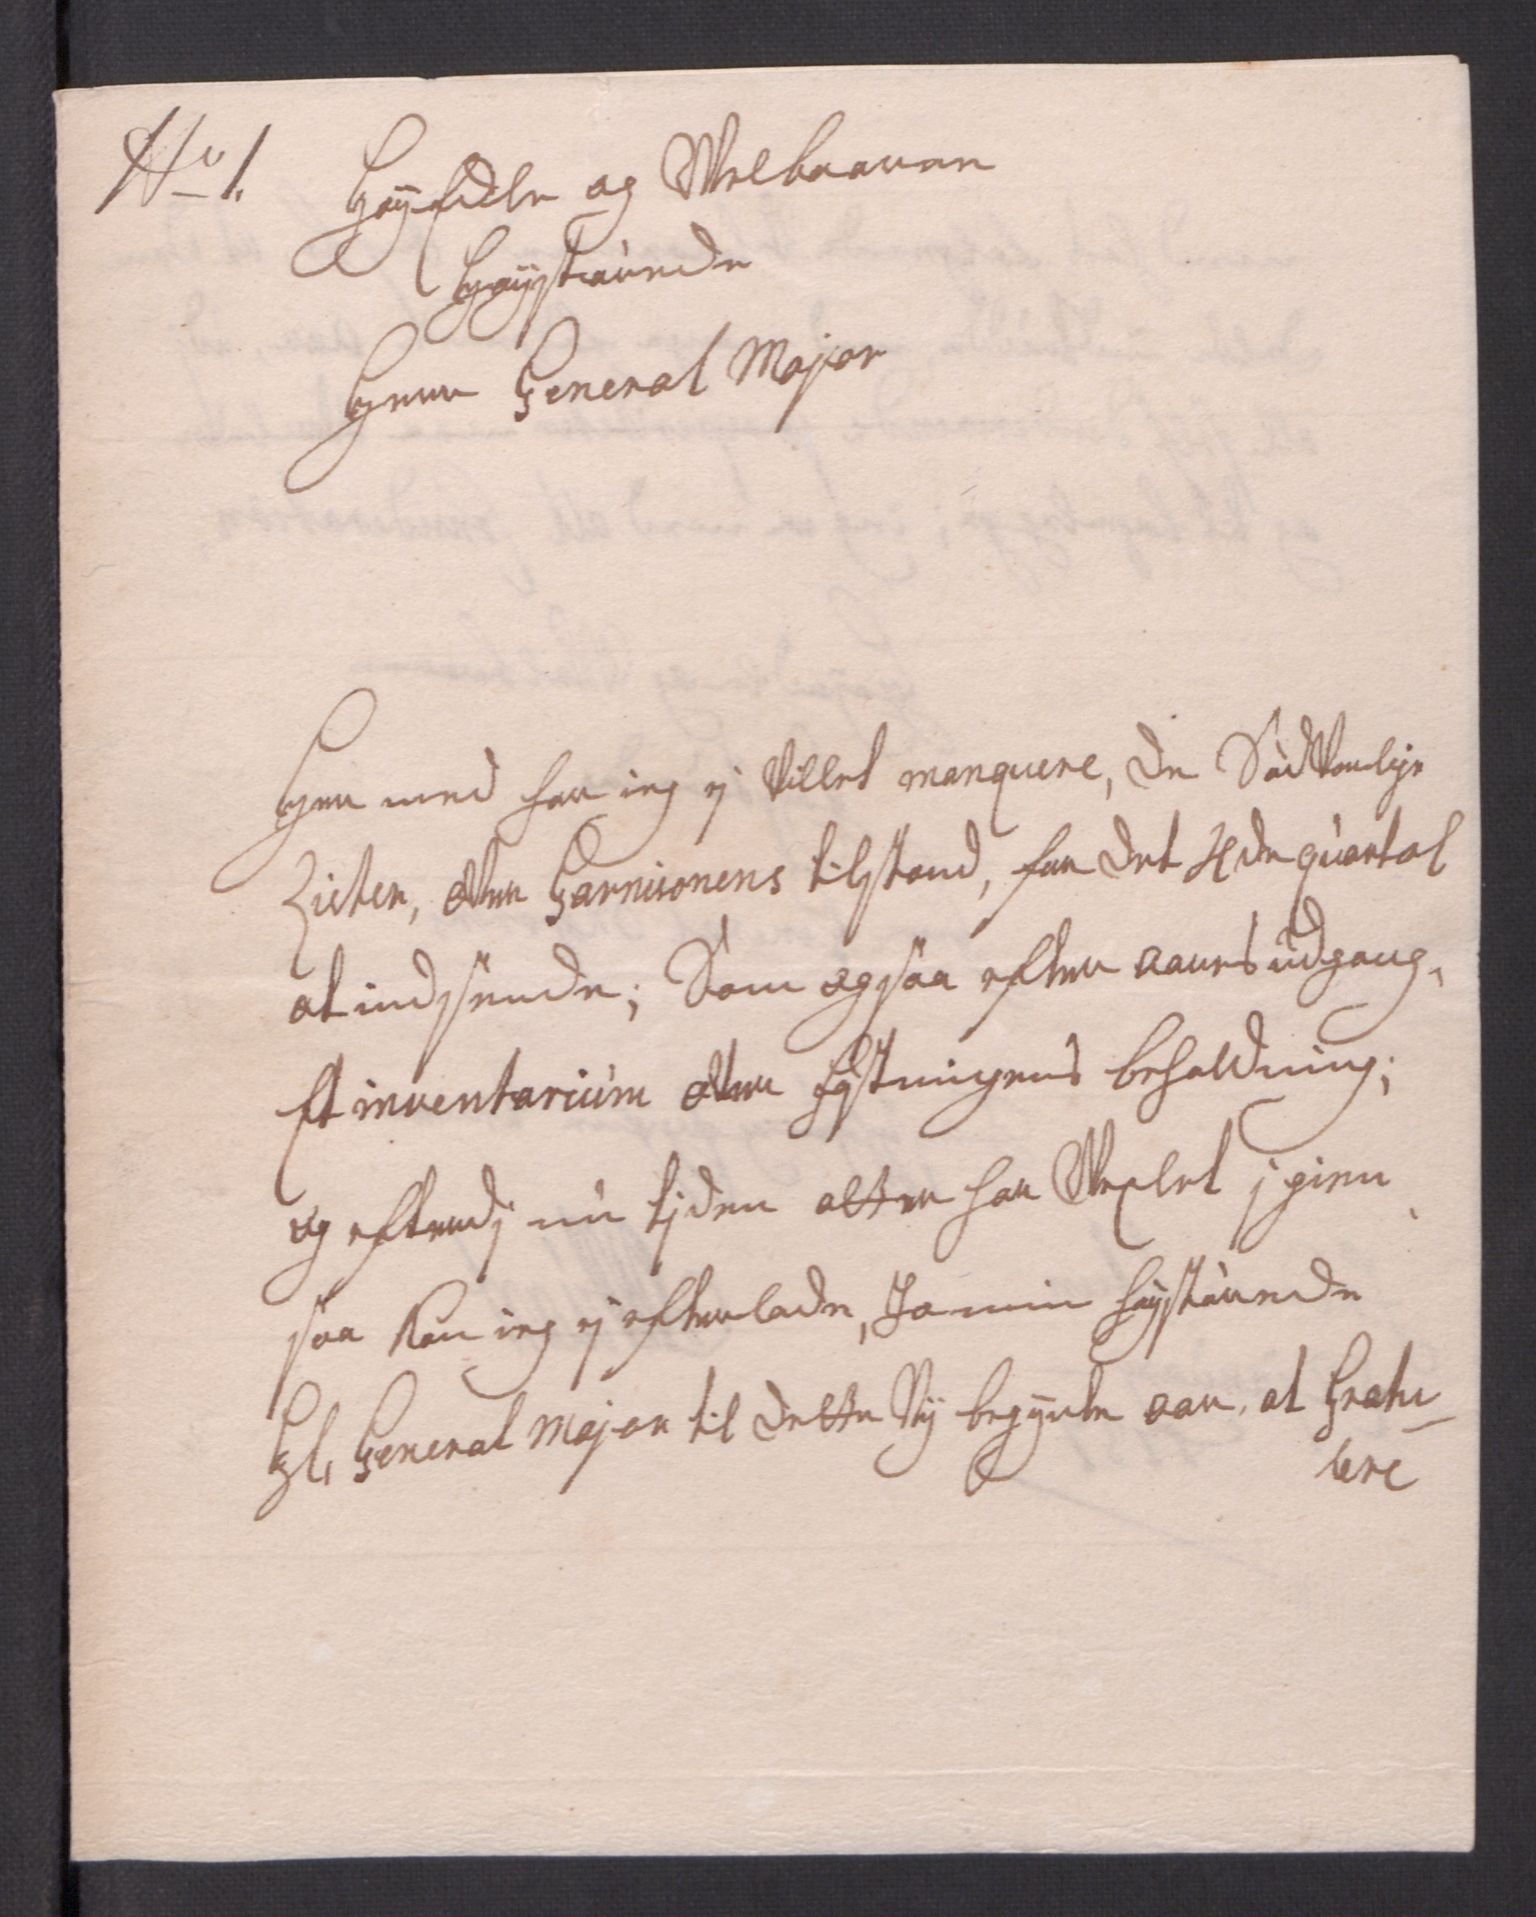 No 1.
Høyædle og Welbaarne
høystærede
Herr General Major
Her med har ieg ej Villet manquere, de Sædvanlige
Lister, over Garnisonens tilstand, for det 4de quartal
at indsende; Som ogsaa efter aaretsudgang,
Et inventarium over Fæstningens beholdning;
og efterdj nu tiden atter har Wexlet jgien
saa kan ieg ej efterlade, Jo min høystærede
Hl. General Major til dette Ny begynte aar, at Gratu-
lere